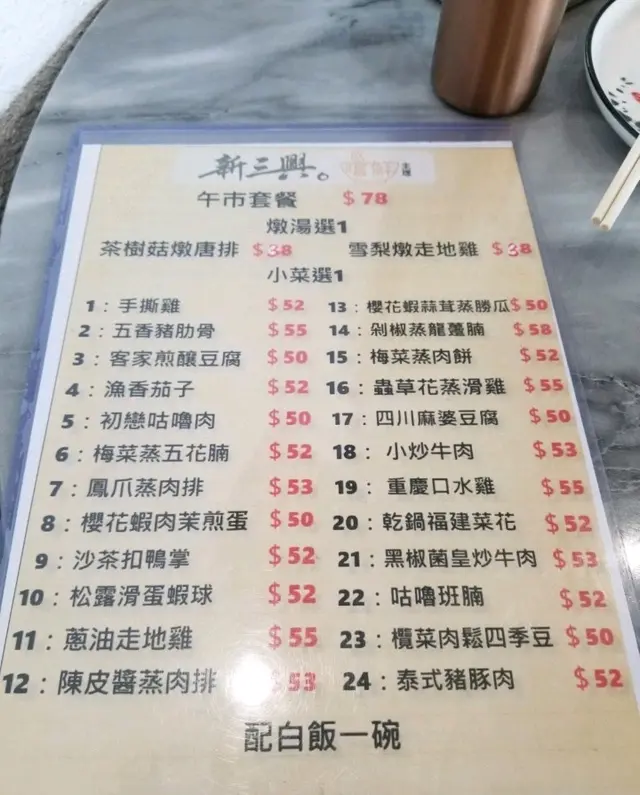 新三興。
主理
午市套餐 $78
燉湯選1
茶樹菇燉唐排 $38 雪梨燉走地雞 $38
小菜選1
1：手撕雞 $52 13：櫻花蝦蒜茸蒸勝瓜 $50
2：五香豬肋骨 $55 14：剁椒蒸龍躉腩 $58
3：客家煎釀豆腐 $50 15：梅菜蒸肉餅 $52
4：漁香茄子 $52 16：蟲草花蒸滑雞 $55
5：初戀咕嚕肉 $50 17：四川麻婆豆腐 $50
6：梅菜蒸五花腩 $52 18：小炒牛肉 $53
7：鳳爪蒸肉排 $53 19：重慶口水雞 $55
8：櫻花蝦肉茉煎蛋 $50 20：乾鍋福建菜花 $52
9：沙茶扣鴨掌 $52 21：黑椒菌皇炒牛肉 $53
10：松露滑蛋蝦球 $52 22：咕嚕班腩 $52
11：蔥油走地雞 $55 23：欖菜肉鬆四季豆 $50
12：陳皮醬蒸肉排 $53 24：泰式豬豚肉 $52
配白飯一碗